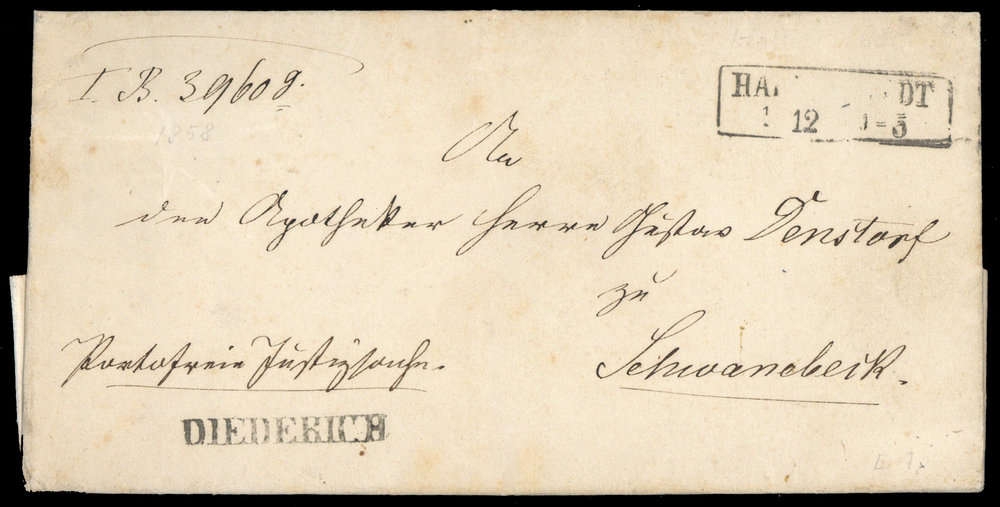 I. B. 3960 g.
HA DT
12 - 5
1858
An
den Apotheker Herrn Gustav Denstorf
zu
Schwanebeck.
Portofreie Justizsache.
DIEDERICH